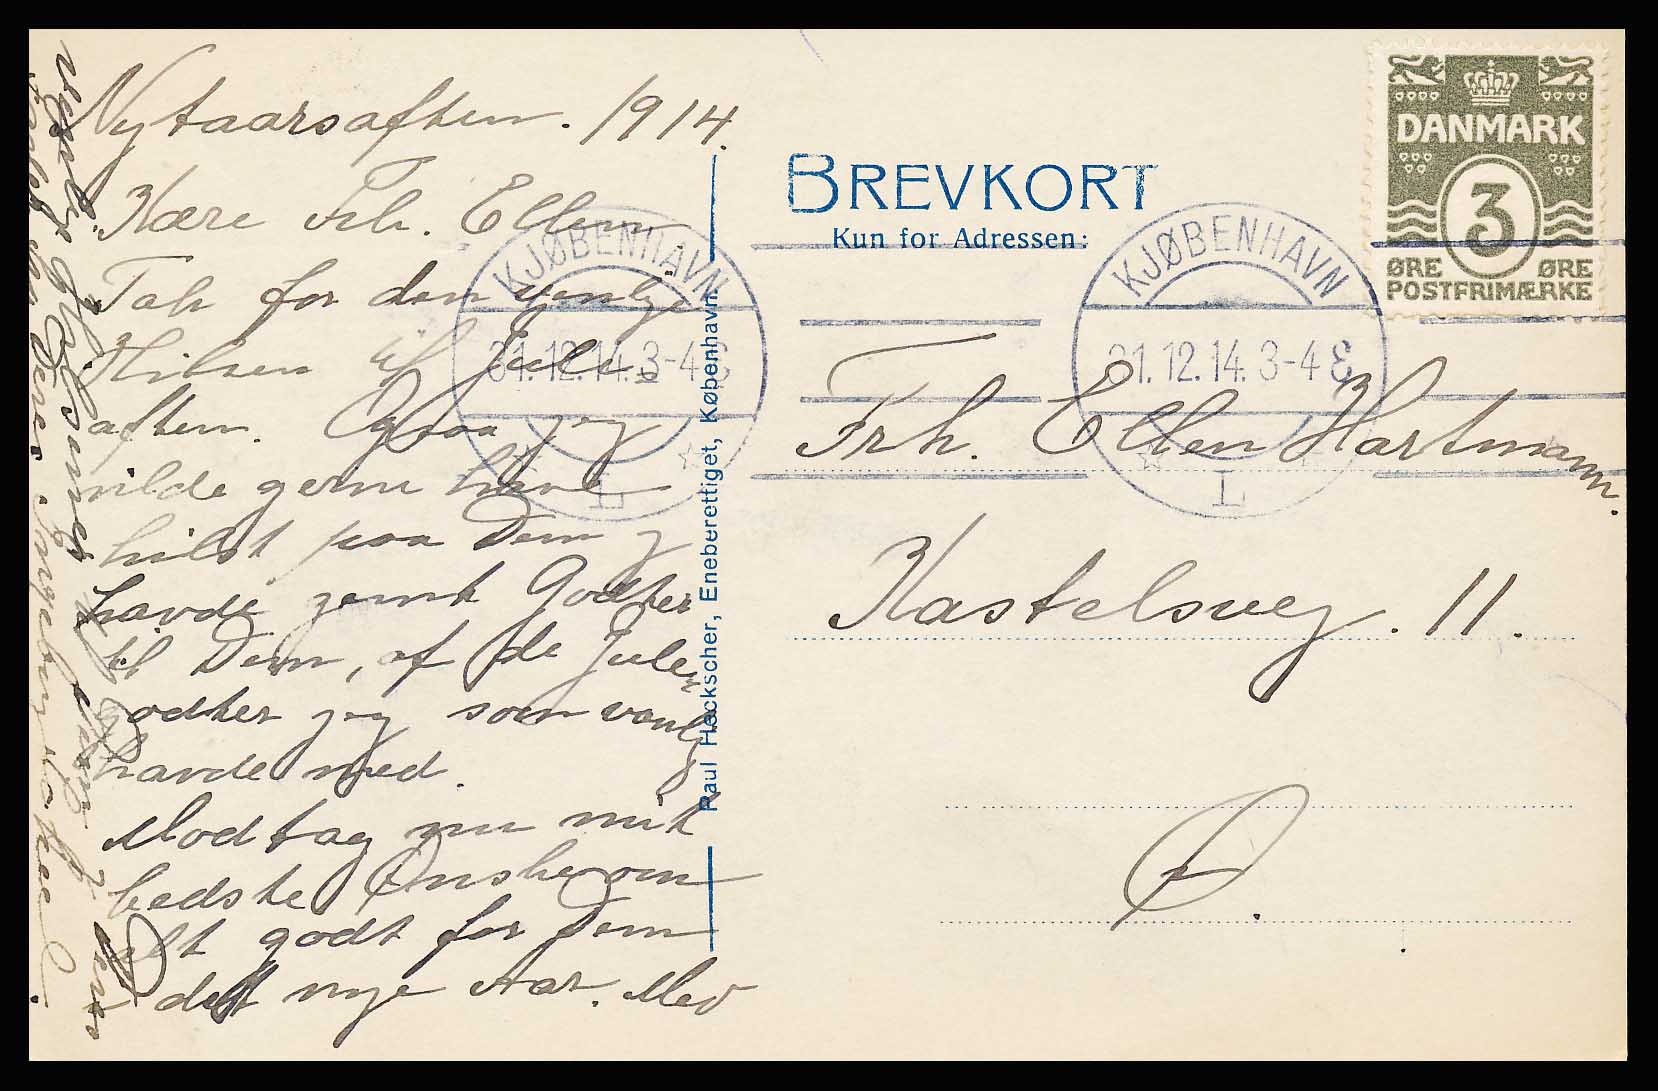 Nytaarsaften. 1914.
Kære Frk. Ellen
Tak for den venlige
Hilsen til Jule-
aften. Ogsaa jeg
vilde gerne have
hilst paa Dem og
havde gemt Godter
til Dem, af de Jule
godter jeg som vanlig
havde med.
Modtag nu mit
bedste Ønske om
alt godt for Dem
i det nye Aar. Med
venlig Hilsen
Deres
BREVKORT
Kun for Adressen:
Paul Heckscher, Eneberettiget, København.
DANMARK
3
ØRE ØRE
POSTFRIMÆRKE
KJØBENHAVN
31.12.14. 3-4 E
L
KJØBENHAVN
31.12.14. 3-4 E
L
Frk. Ellen Hartmann.
Kastelsvej. 11.
Ø.